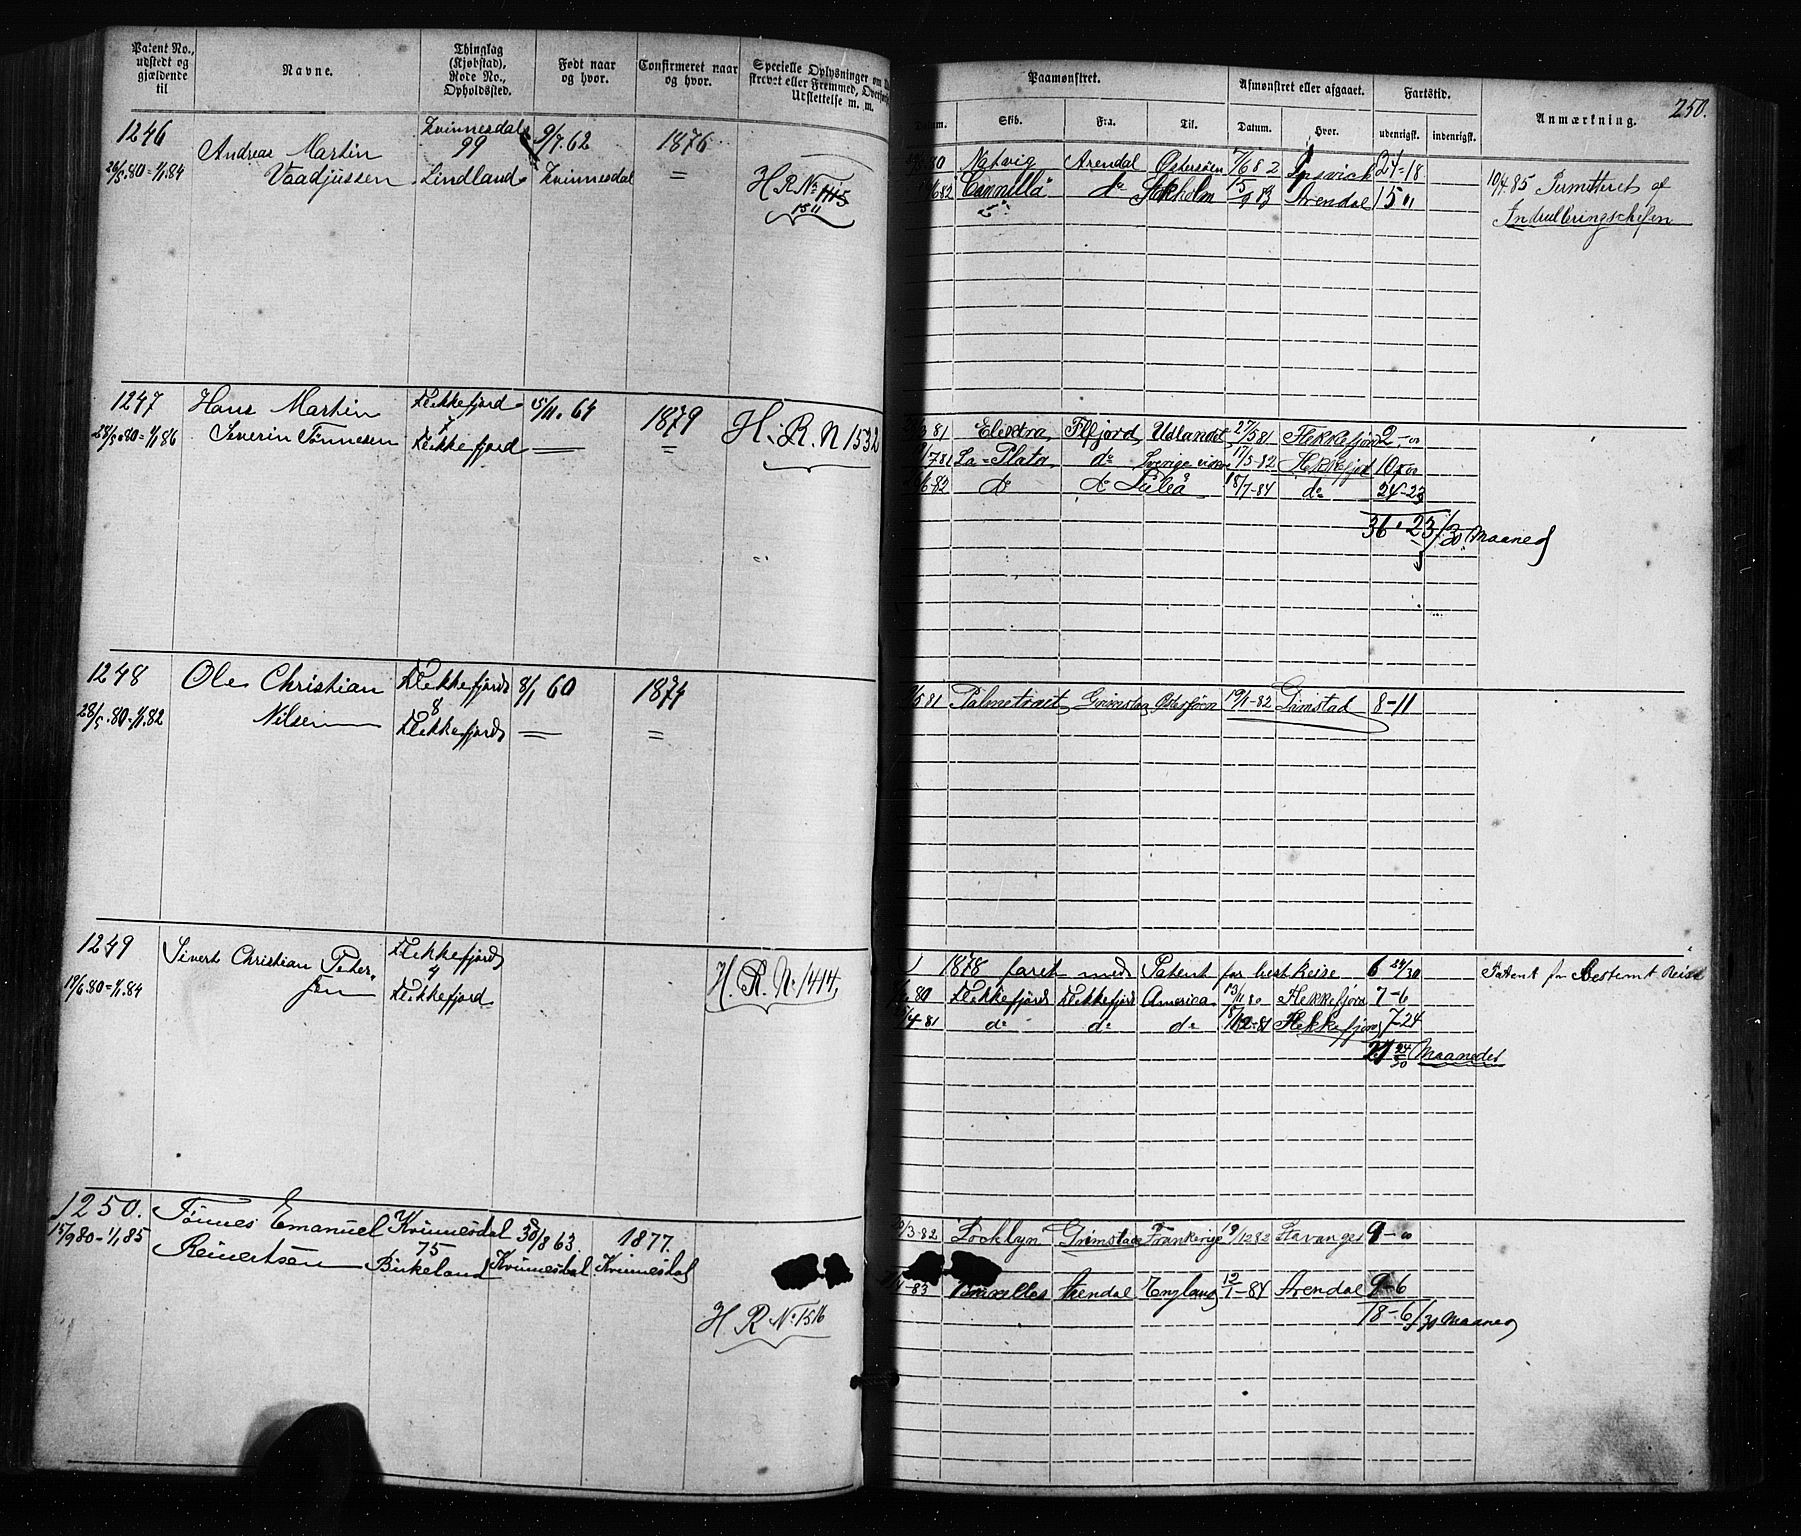 Patent No., udstedt og gjældende til
Navne.
Thinglag (Kjøbstad), Rode No., Opholdssted.
Født naar og hvor.
Confirmeret naar og hvor.
Specielle Oplysninger om
Paamønstret.
Afmønstret eller afgaaet.
Fartstid.
Anmærkning.
250.
Datum.
Skib.
Fra.
Til.
Datum.
Hvor.
udenrigsk.
indenrigsk.
1246
26/5.80=1/1.84
Andreas Martin
Vaadjussen
Kvinnesdal
99
Lindland
9/7.62
Kvinnesdal
1876
=
H R No
1511
Natvig Arendal Østersøen 7/6 82 Ipsvick 24-18
6 82 Cammilla do Stokholm 15/9 83 Arendal 15 "
10/4.85 Permitteret af
Indrulleringschefen
1247
28/5.80=1/1.86
Hans Martin
Severin Tønnesen
Flekkefjord
7
Flekkefjord
15/11.64
1879
=
H. R. N 1532
81 Elektra Flfjord Udlandet 27/5 81 Flekkefjord 2-"
7 81 La-Plata do Sverige 17/5-82 Flekkefjord 10
6-82 do do Luleå 18/7-84 do 24-23
36 . 23/30 Maaned
1248
28/5.80=1/1.82
Ole Christian
Nilsen
Flekkefjord
8
Flekkefjord
8/1 60
1874
=
5 81 Palmetræet Grimstad Østersøen 19/1-82 Grimstad 8-11
1249
19/6.80=1/1.84
Sivert Christian Peter-
sen
Flekkefjord
4
Flekkefjord
H. R. No 1414
1878 faret med Patent for best Reise 6 24/30
Patent for Bestemt Reise
80 Flekkefjord Flekkefjord America 13/11 80 Flekkefjord 7-6
4-81 do do do 18/12-81 Flekkefjord 7-24
21 24/30 Maaneder
1250.
15/9 80=1/1 85
Tønnes Emanuel
Reinertsen
Kvinnesdal
75
Birkeland
30/8 63
Kvinnesdal
1877.
Kvinnesdal
H R No 1516
3-82 Locklyn Grimstad Frankerige 19/12 82 Stavanger 9-"
83 Arendal England 12/1-84 Arendal 9-6
18-6/30 Maaned